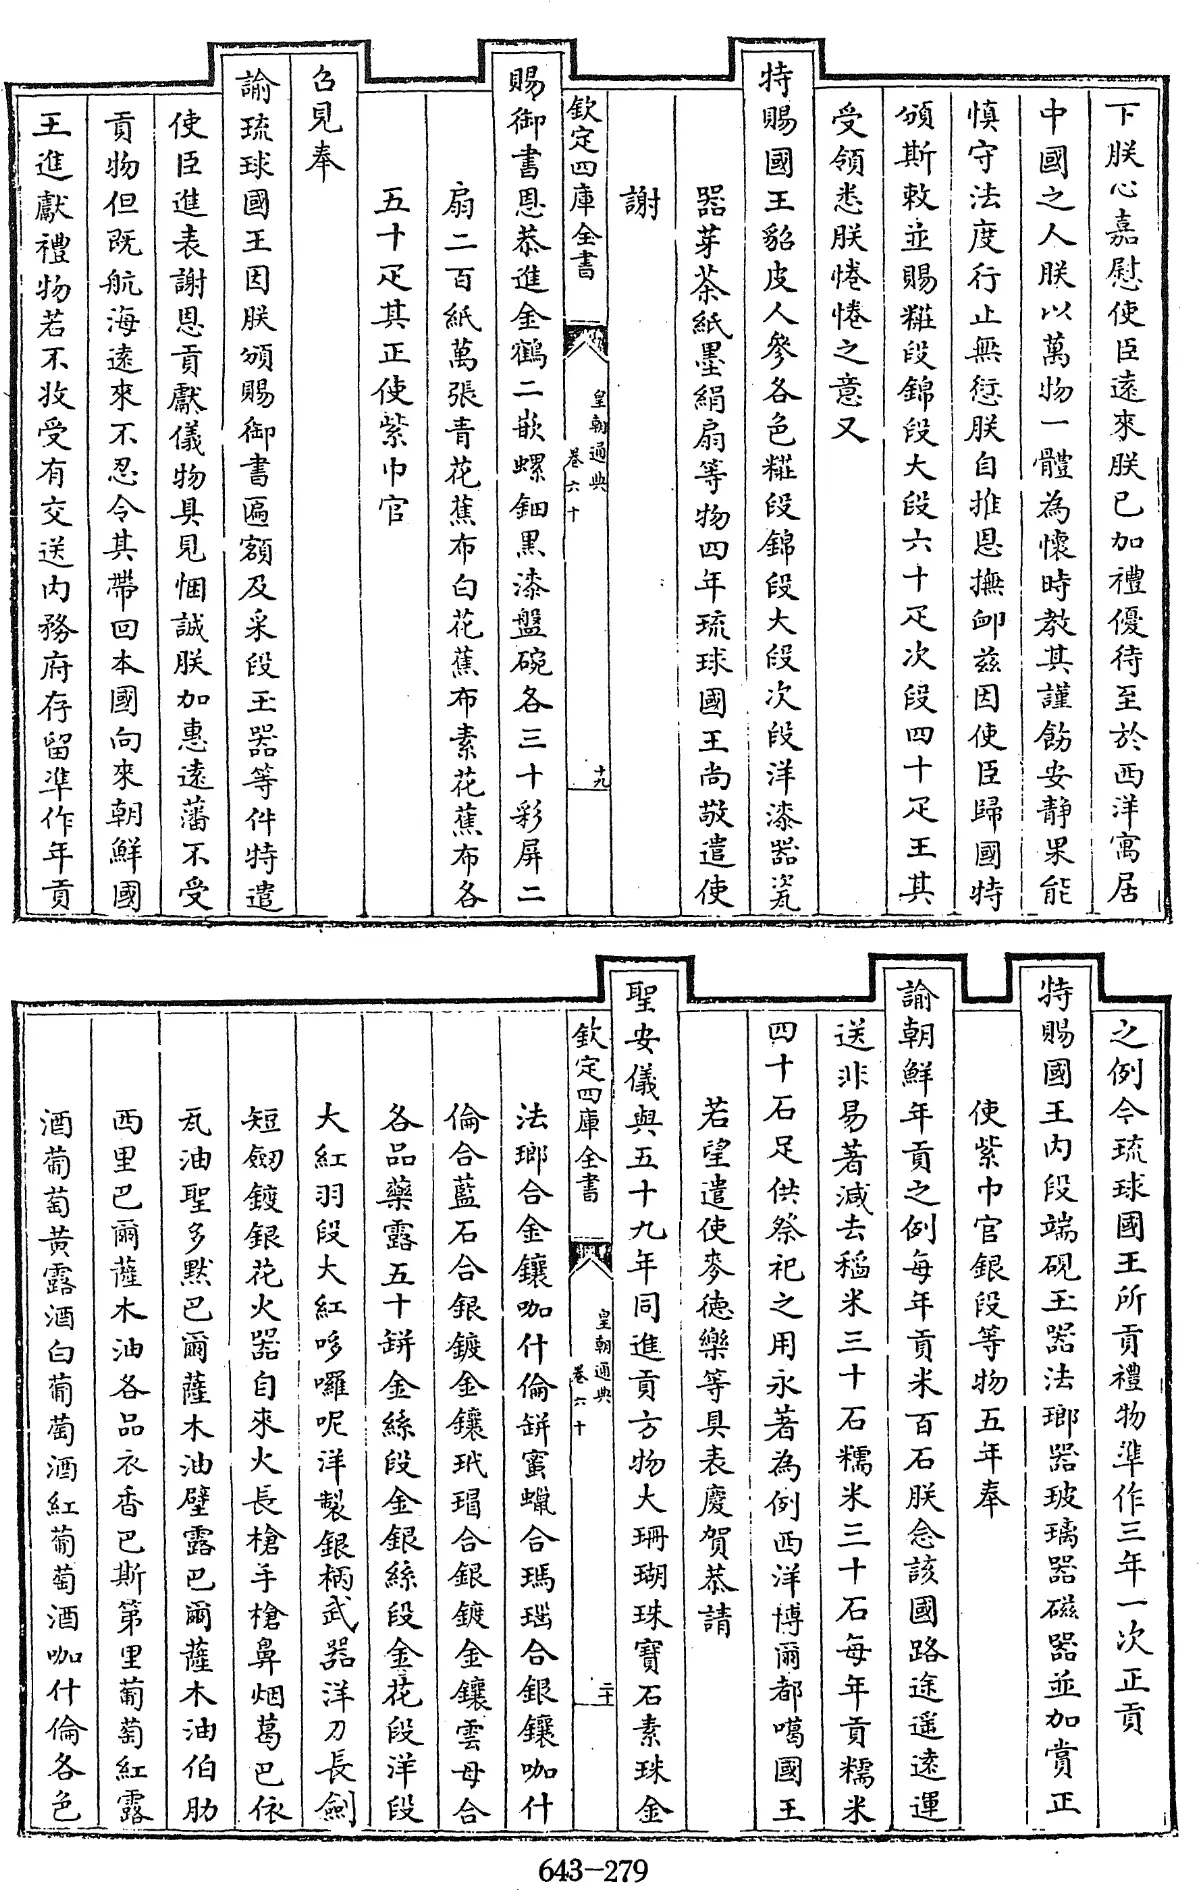 下朕心嘉慰使臣遠來朕已加禮優待至於西洋寓居
中國之人朕以萬物一體為懷時教其謹飭安靜果能
慎守法度行止無愆朕自推恩撫卹兹因使臣歸國特
頒斯敕並賜糚段錦段大段六十疋次段四十疋王其
受領悉朕惓惓之意又
特賜國王貂皮人參各色糚段錦段大段次段洋漆器瓷
器芽茶紙墨絹扇等物四年琉球國王尚敬遣使
謝
欽定四庫全書
皇朝通典
卷六十
十九
賜御書恩恭進金鶴二嵌螺鈿黑漆盤碗各三十彩屏二
扇二百紙萬張青花蕉布白花蕉布素花蕉布各
五十疋其正使紫巾官
召見奉
諭琉球國王因朕頒賜御書匾額及采段玉器等件特遣
使臣進表謝恩貢獻儀物具見悃誠朕加惠遠藩不受
貢物但既航海遠來不忍令其帶回本國向來朝鮮國
王進獻禮物若不收受有交送内務府存留準作年貢
之例今琉球國王所貢禮物準作三年一次正貢
特賜國王内段端硯玉器法瑯器玻璃器磁器並加賞正
使紫巾官銀段等物五年奉
諭朝鮮年貢之例每年貢米百石朕念該國路途遥遠運
送非易著減去稻米三十石糯米三十石每年貢糯米
四十石足供祭祀之用永著為例西洋博爾都噶國王
若望遣使麥德樂等具表慶賀恭請
聖安儀與五十九年同進貢方物大珊瑚珠寶石素珠金
欽定四庫全書
皇朝通典
卷六十
二十
法瑯合金鑲咖什倫缾蜜蠟合瑪瑙合銀鑲咖什
倫合藍石合銀鍍金鑲玳瑁合銀鍍金鑲雲母合
各品藥露五十缾金絲段金銀絲段金花段洋段
大紅羽段大紅哆囉呢洋製銀柄武器洋刀長劍
短劒鍍銀花火器自來火長槍手槍鼻烟葛巴依
瓦油聖多黙巴爾薩木油壁露巴爾薩木油伯肋
西里巴爾薩木油各品衣香巴斯第里葡萄紅露
酒葡萄黄露酒白葡萄酒紅葡萄酒咖什倫各色
643-279